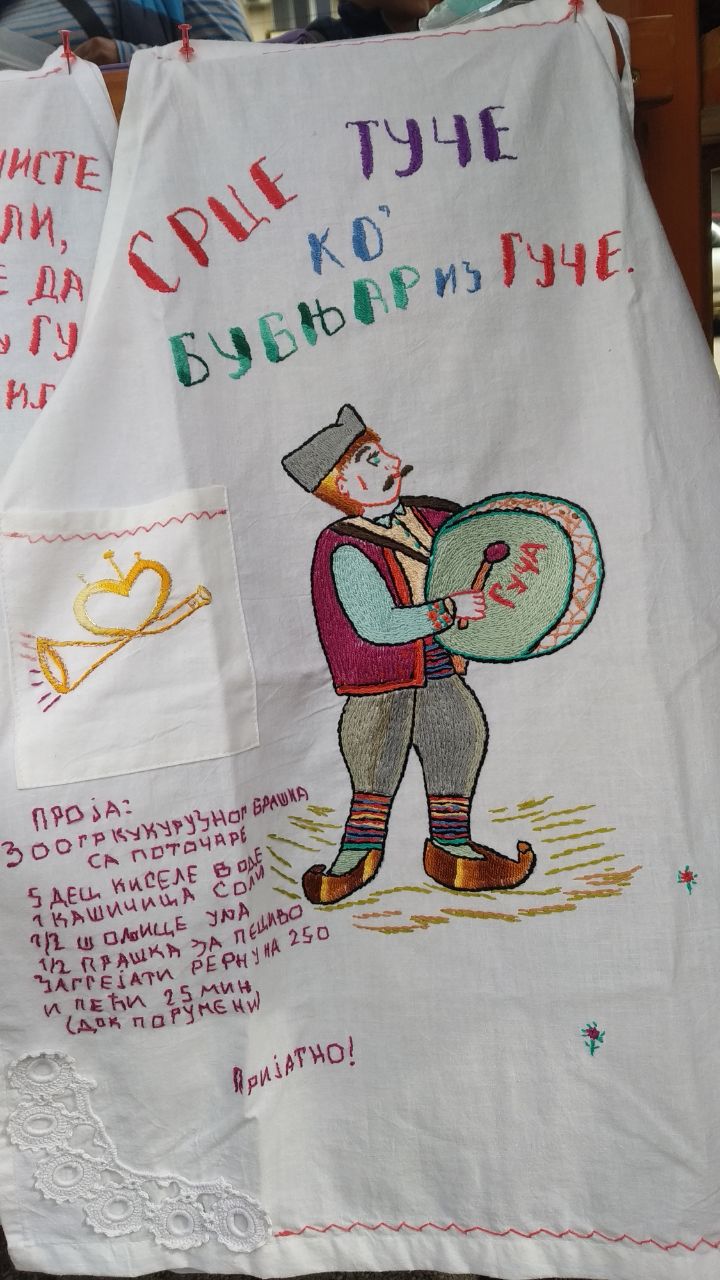 СРЦЕ ТУЧЕ
КО'
БУБЊАР ИЗ ГУЧЕ.
ГУЧА
ПРОЈА:
300 ГР КУКУРУЗНОГ БРАШНА
СА ПОТОЧАРЕ
5 ДЕЦ КИСЕЛЕ ВОДЕ
1 КАШИЧИЦА СОЛИ
1/2 ШОЉИЦЕ УЉА
1/2 ПРАШКА ЗА ПЕЦИВО
ЗАГРЕЈАТИ РЕРНУ НА 250
И ПЕЋИ 25 МИН
(ДОК ПОРУМЕНИ)
ПРИЈАТНО!
ДА
ГУ